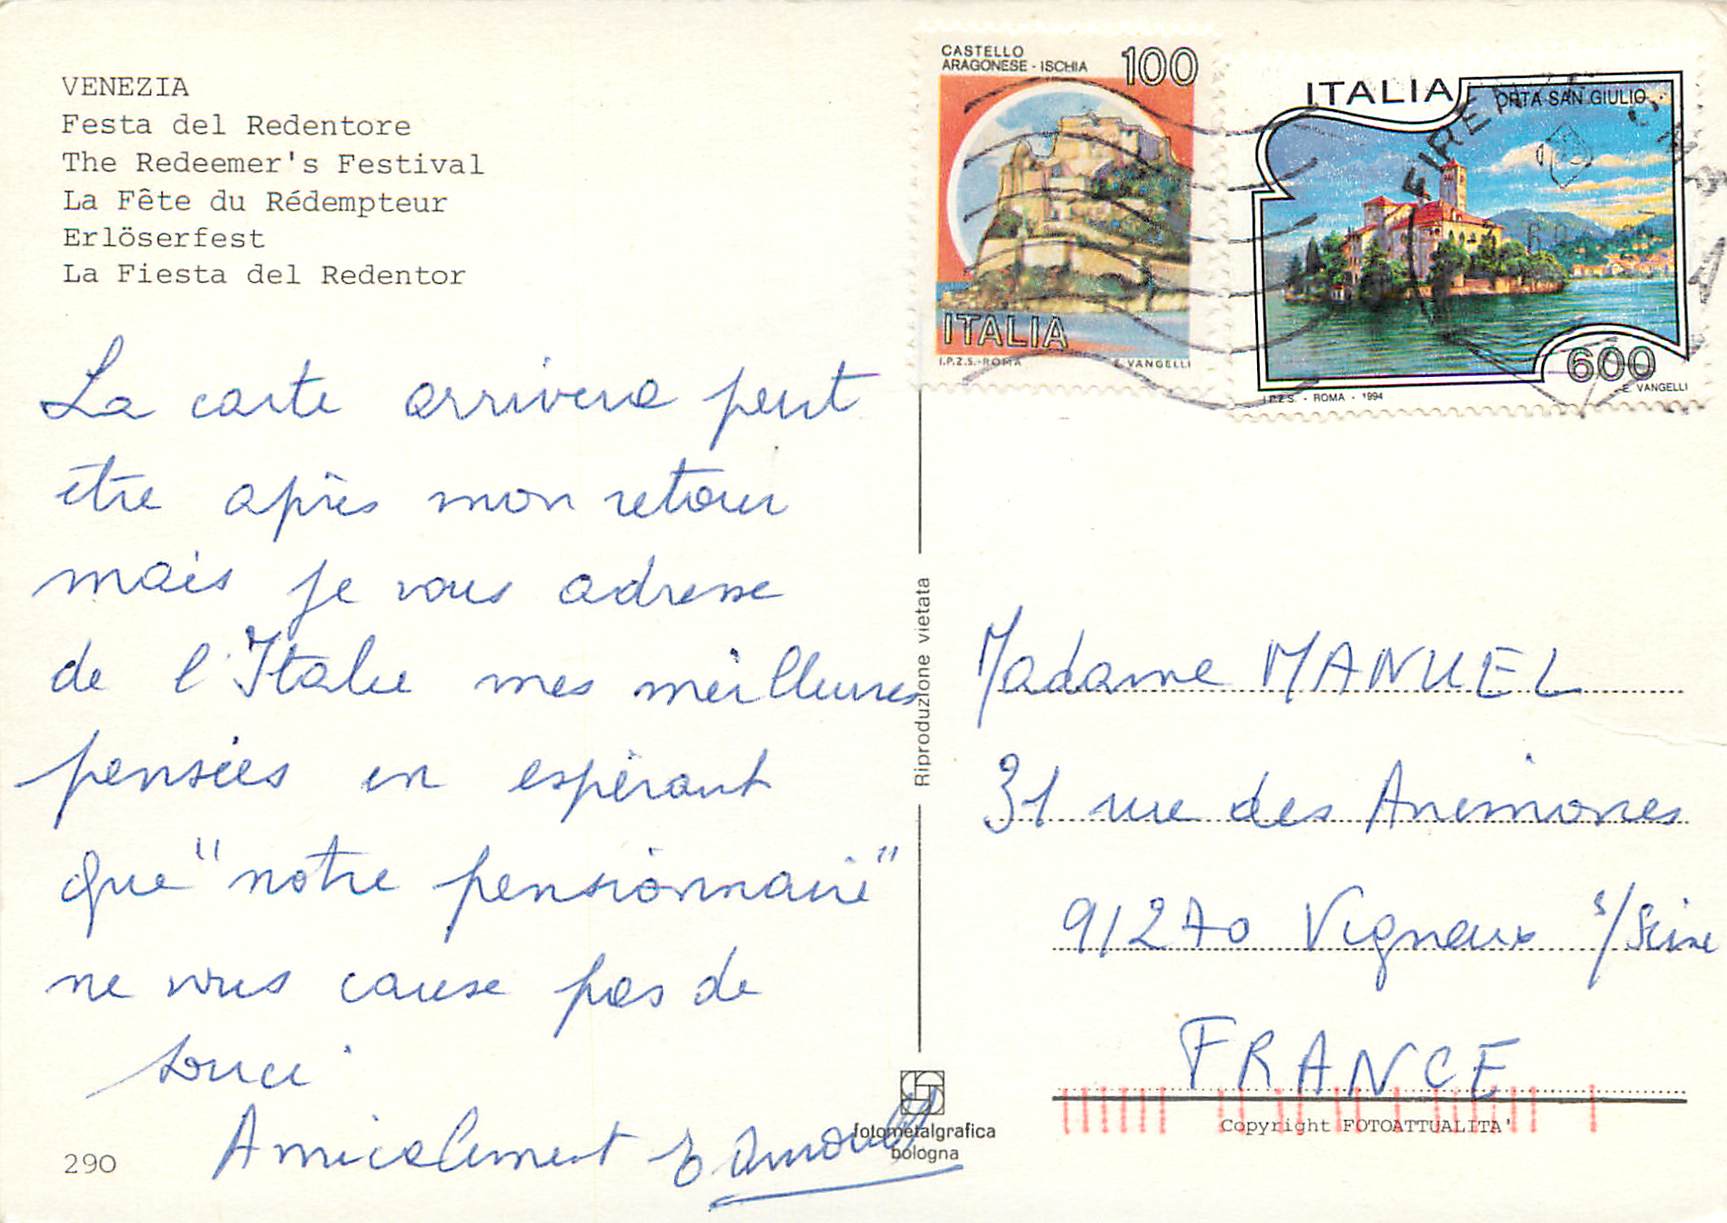 VENEZIA
Festa del Redentore
The Redeemer's Festival
La Fête du Rédempteur
Erlöserfest
La Fiesta del Redentor
La carte arrivera peut
être après mon retour
mais je vous adresse
de l'Italie mes meilleures
pensées en espérant
que "notre pensionnaire"
ne vous cause pas de
souci
Amicalement
290
CASTELLO
ARAGONESE - ISCHIA 100
ITALIA
I.P.Z.S.-ROMA E. VANGELLI
ITALIA
ORTA SAN GIULIO
600
I.P.Z.S. - ROMA - 1994 E. VANGELLI
Riproduzione vietata
Madame MANUEL
31 rue des Anemones
91270 Vigneux s/Seine
FRANCE
fotometalgrafica
bologna
Copyright FOTOATTUALITA'